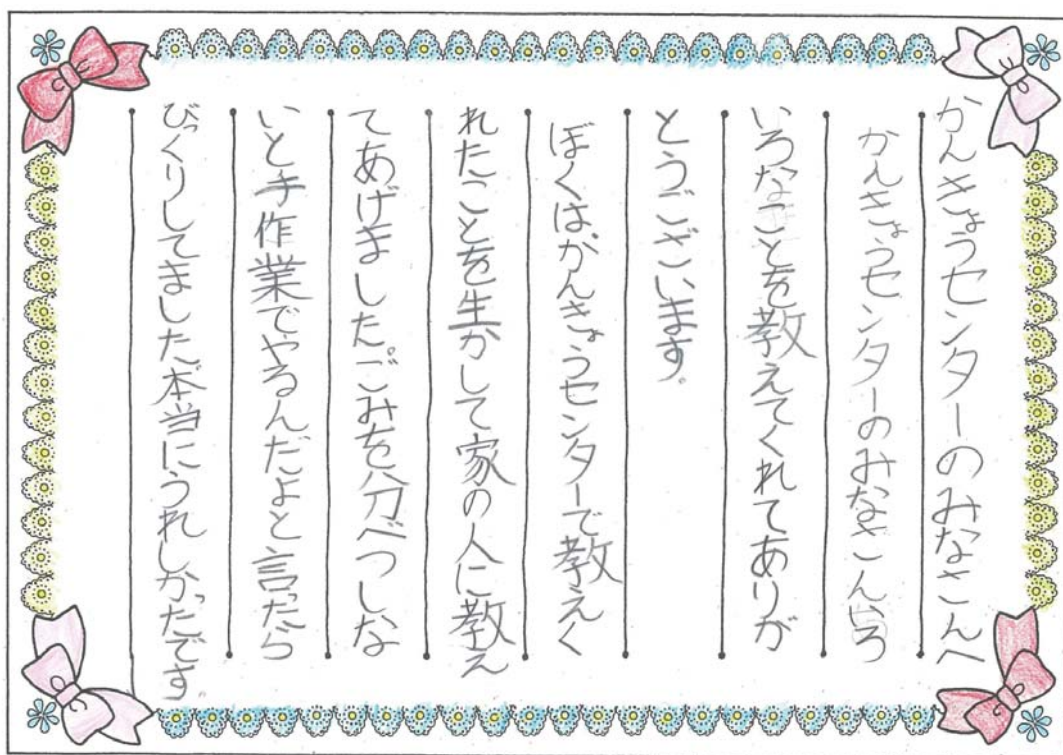 かんきょうセンターのみなさんへ
かんきょうセンターのみなさんいろ
いろなことを教えてくれてありが
とうございます。
ぼくは、かんきょうセンターで教えく
れたことを生かして家の人に教え
てあげました。ごみを分べつしな
いと手作業でやるんだよと言ったら
びっくりしてました本当にうれしかったです。